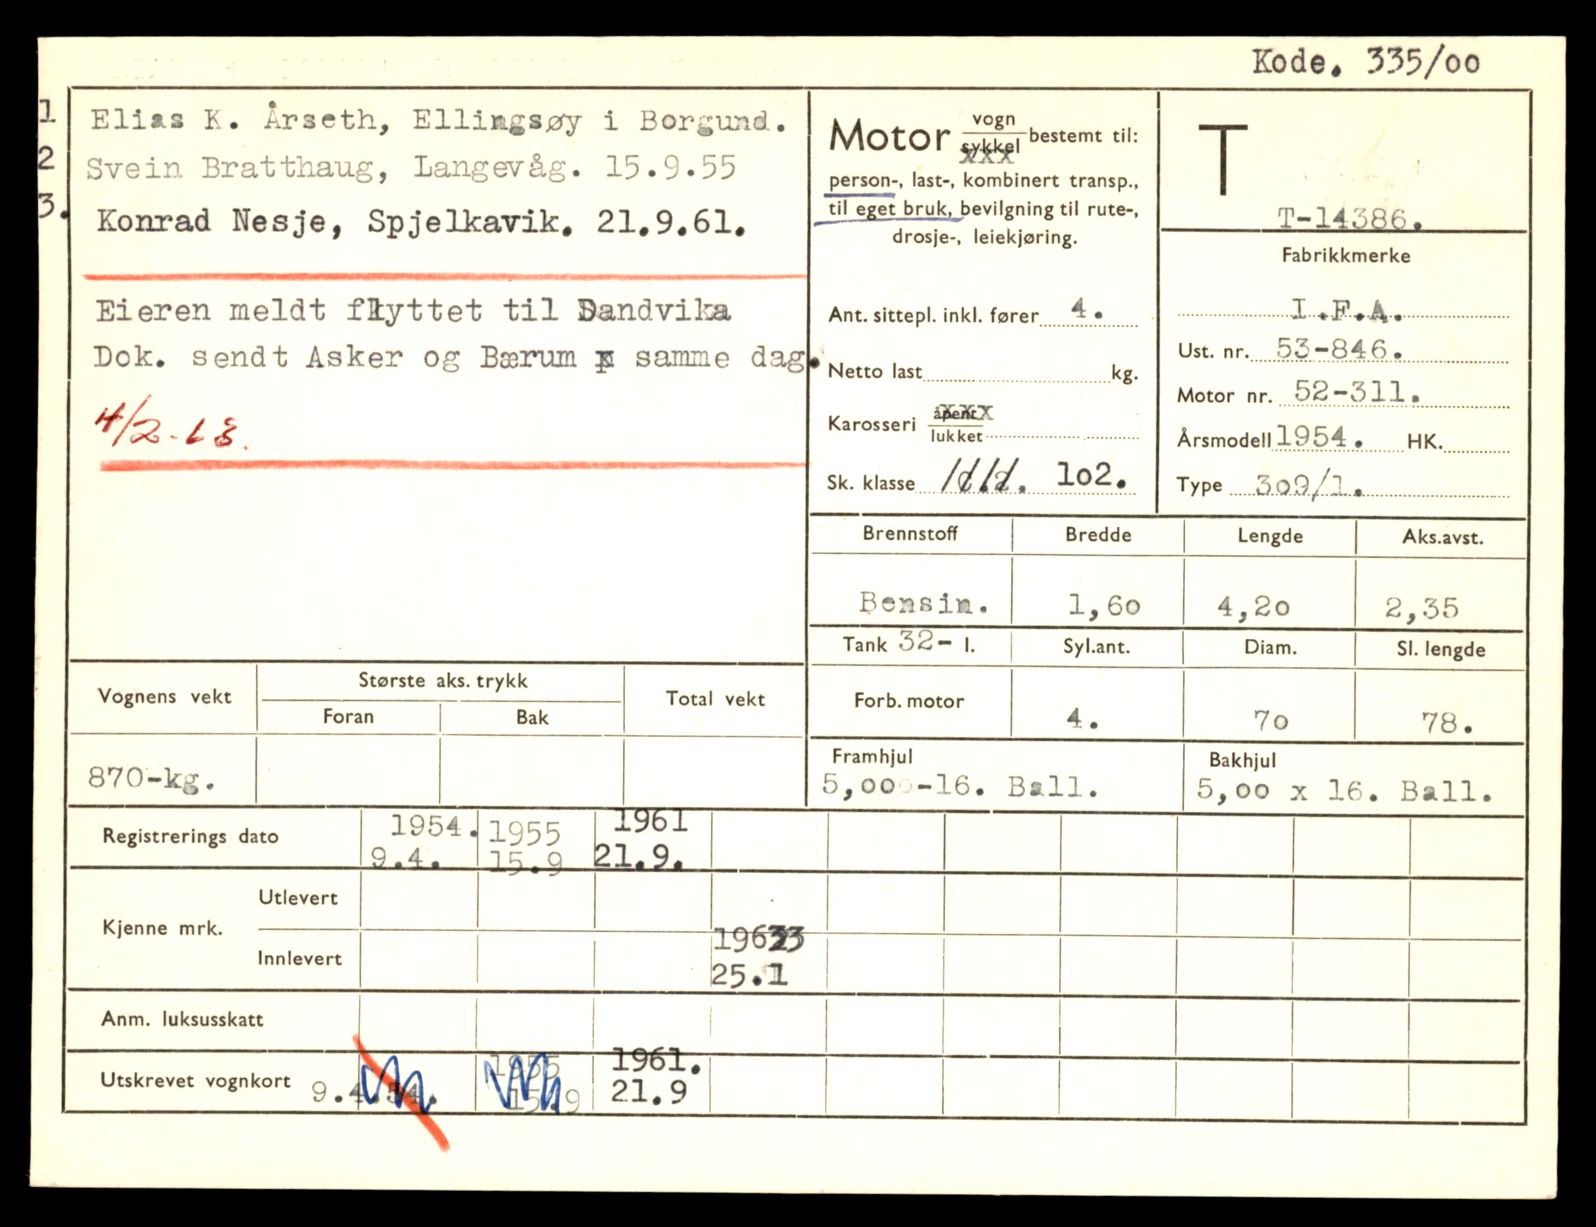 Kode. 335/oo
1 Elias K. Årseth, Ellingsøy i Borgund.
2 Svein Bratthaug, Langevåg. 15.9.55
3. Konrad Nesje, Spjelkavik. 21.9.61.
Eieren meldt flyttet til Sandvika
Dok. sendt Asker og Bærum samme dag.
4/2-63.
Motor vogn/sykkel bestemt til:
person-, last-, kombinert transp.,
til eget bruk, bevilgning til rute-,
drosje-, leiekjøring.
Ant. sittepl. inkl. fører 4.
Netto last kg.
Karosseri åpent/lukket
Sk. klasse 1o2.
T
T-14386.
Fabrikkmerke
I.F.A.
Ust. nr. 53-846.
Motor nr. 52-311.
Årsmodell 1954. HK.
Type 3o9/1.
Brennstoff Bredde Lengde Aks.avst.
Bensin. 1,6o 4,2o 2,35
Tank 32- l. Syl.ant. Diam. Sl. lengde
Forb. motor 4. 7o 78.
Framhjul Bakhjul
5,oo -16. Ball. 5,oo x 16. Ball.
Vognens vekt Største aks. trykk Total vekt
Foran Bak
870-kg.
Registrerings dato 1954. 1955 1961
9.4. 15.9 21.9.
Kjenne mrk. Utlevert
Innlevert 1963
25.1
Anm. luksusskatt
Utskrevet vognkort 9.4.54. 1955 1961.
15.9 21.9